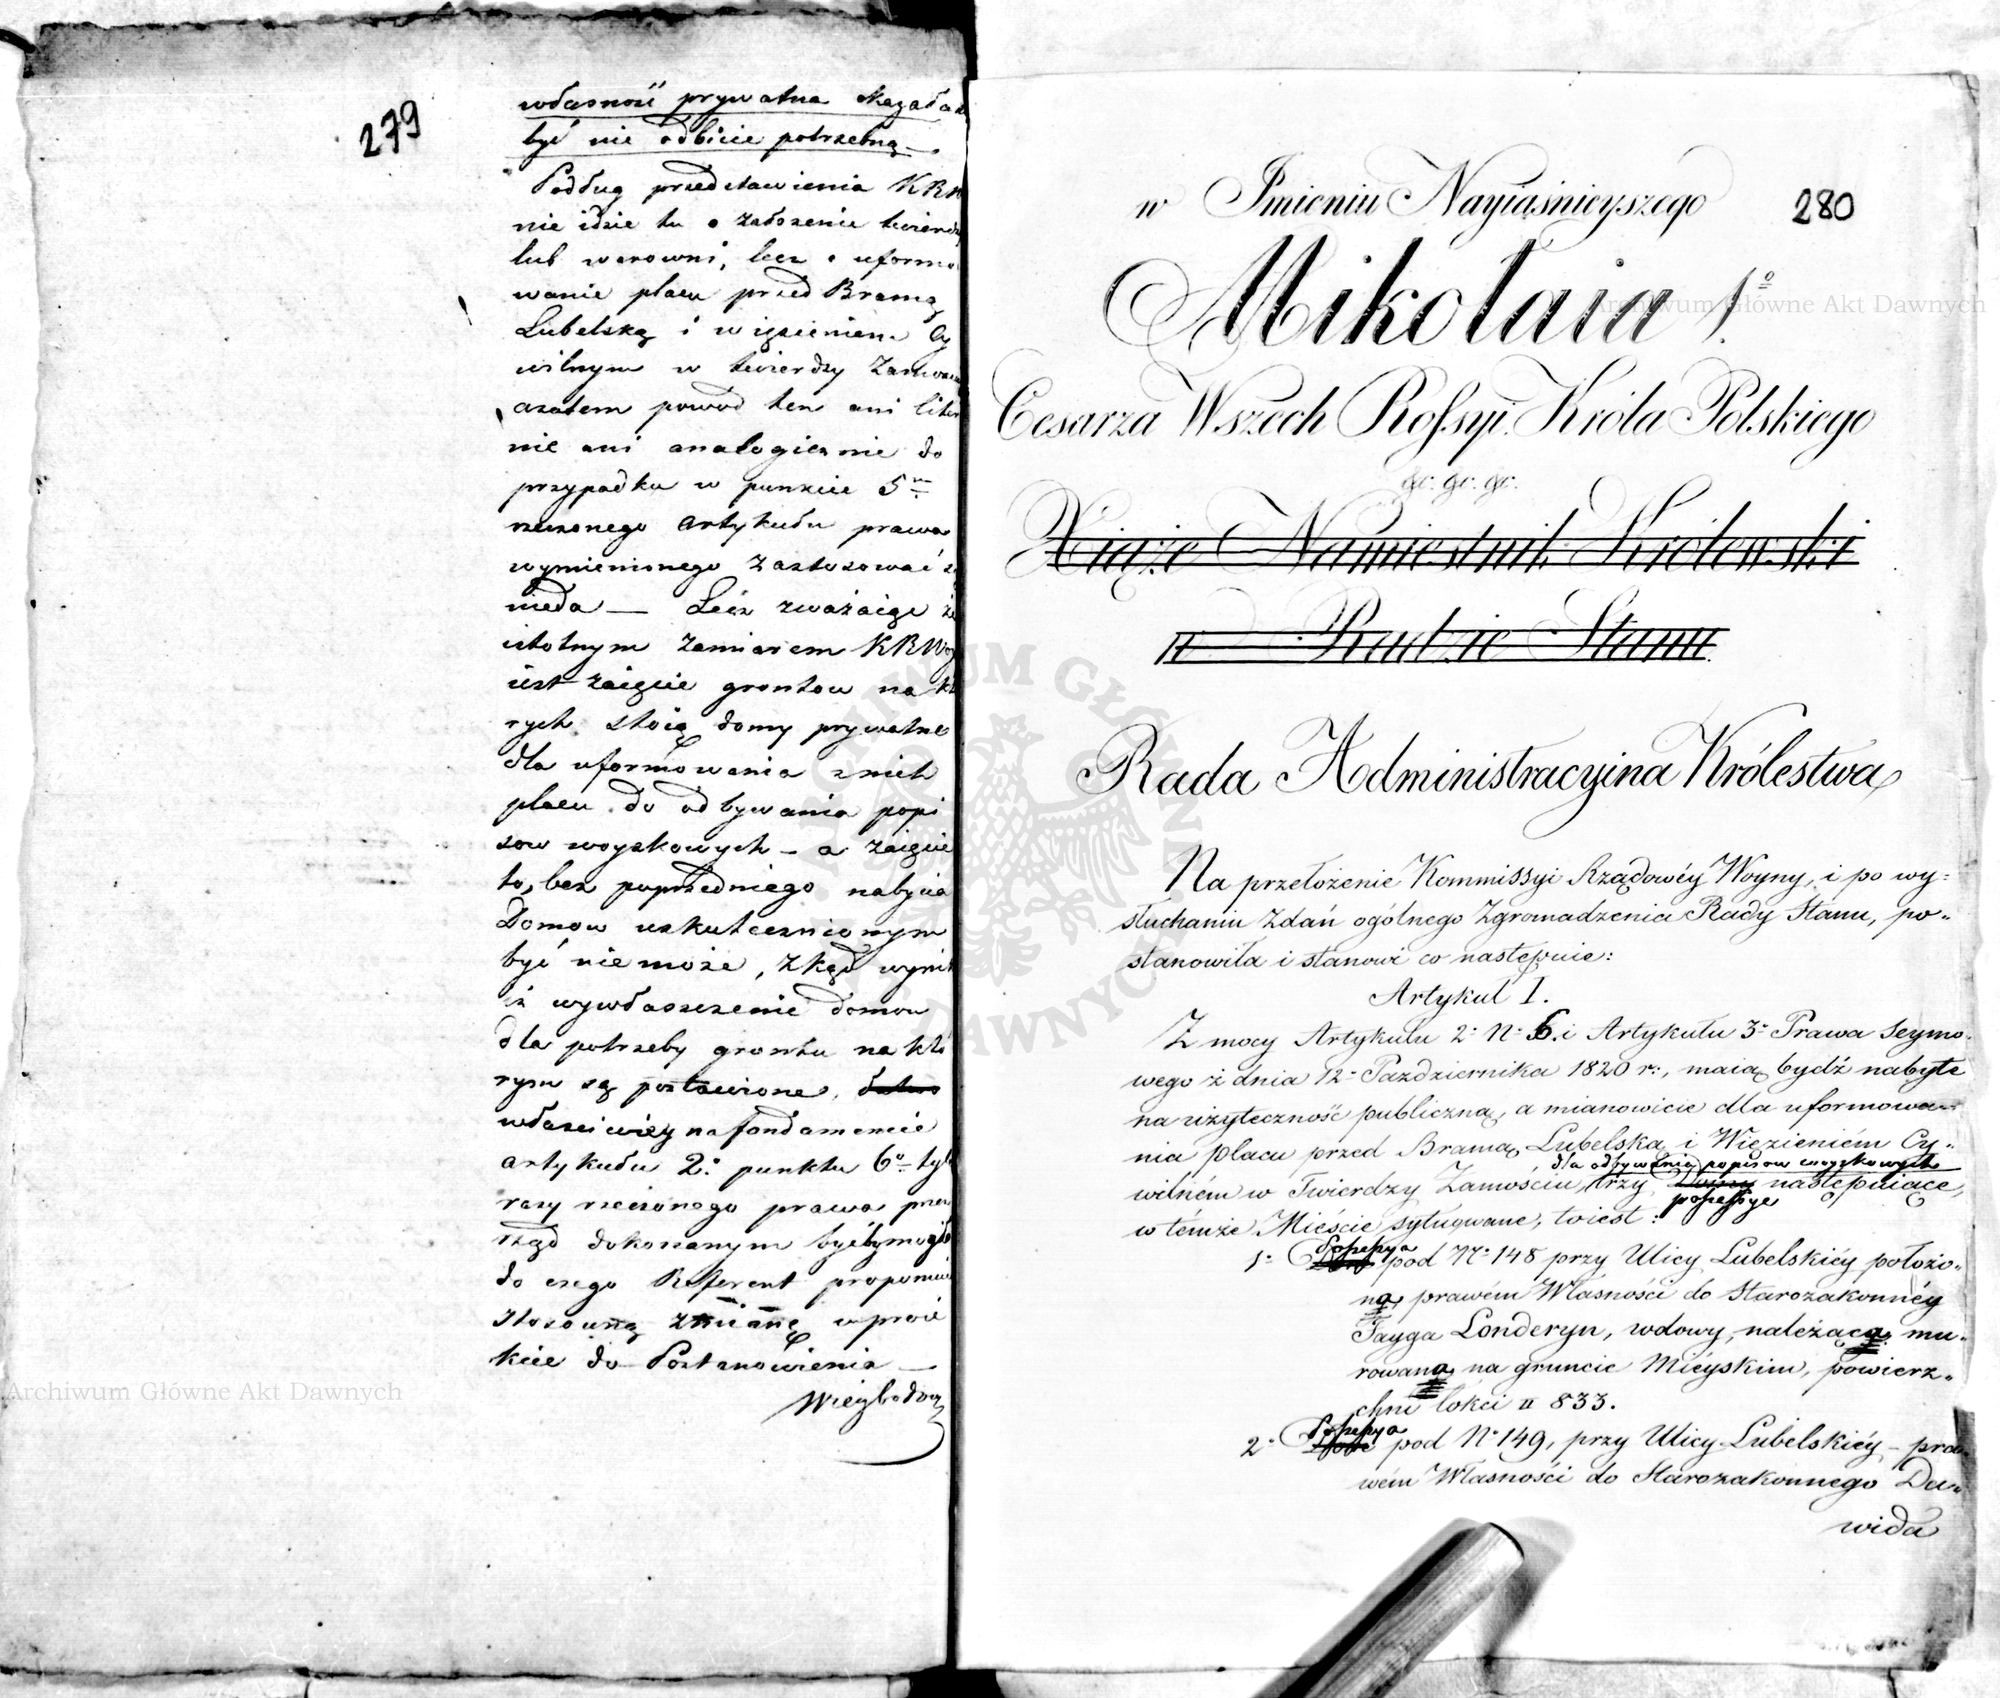 279
własność prywatna okazała
być nie odbicie potrzebną —
Podług przedstawienia KRW
nie idzie tu o założenie twierdzy
lub warowni, lecz o uformo
wanie placu przed Bramą
Lubelską i więzieniem Cy
wilnym w twierdzy Zamościu
azatem powód ten ani liter
nie ani analogicznie do
przypadku w punkcie 5m
rzeczonego artykułu prawa
wymienionego zastosować się
nieda — Lecz zważaiąc że
istotnym zamiarem KRWoy
iest zaięcie grontow na któ
rych stoią domy prywatne
dla uformowania z nich
placu do odbywania popi
sow woyskowych — a zaięcie
to, bez poprzedniego nabycia
Domow uskutecznionym
być nie może, zkąd wynik
iż wywłaszczenie domow
dla potrzeby grontu na któ
rym są postawione,
właściwiey na fondamencie
artykułu 2.° punktu 6°. tyle
razy rzeczonego prawa przez
rząd dokonanym byćby mogło
do czego Referent proponuie
stosowną zmianę w proie
kcie do Postanowienia —
280
w Imieniu Nayiaśnieyszego
Mikołaia I°.
Cesarza Wszech Rossyi. Króla Polskiego
&c. &c. &c.
Xiąże Namiestnik Królewski
w Radzie Stanu
Rada Administracyina Królestwa
Na przełożenie Kommissyi Rządowéy Woyny, i po wy=
słuchaniu Zdań ogólnego Zgromadzenia Rady Stanu, po=
stanowiła i stanowi co następuie:
Artykuł I.
Z mocy Artykułu 2° N° 6. i Artykułu 3° Prawa Seymo=
wego z dnia 12° Pazdziernika 1820 r:, maią bydź nabyte
na użyteczność publiczną, a mianowicie dla uformowa=
nia placu przed Bramą Lubelską i Więzieniém Cy=
dla odbywania popisow woyskowych
wilném w Twierdzy Zamościu, trzy Domy następuiące,
possessye
w témże Mieście sytuowane, to iest:
Possessya
1° Dom pod N° 148 przy Ulicy Lubelskiéy położo=
na, prawém Własności do Starozakonnéy
Tayga Londeryn, wdowy, należąca, mu=
rowana, na gruncie Mieyskim, powierz=
chni łokci □ 833.
Possessya
2° Dom pod N° 149, przy Ulicy Lubelskiéy — pra=
wém Własności do Starozakonnego Da=
wida
Archiwum Główne Akt Dawnych
Archiwum Główne Akt Dawnych
ARCHIWUM GŁÓWNE AKT DAWNYCH